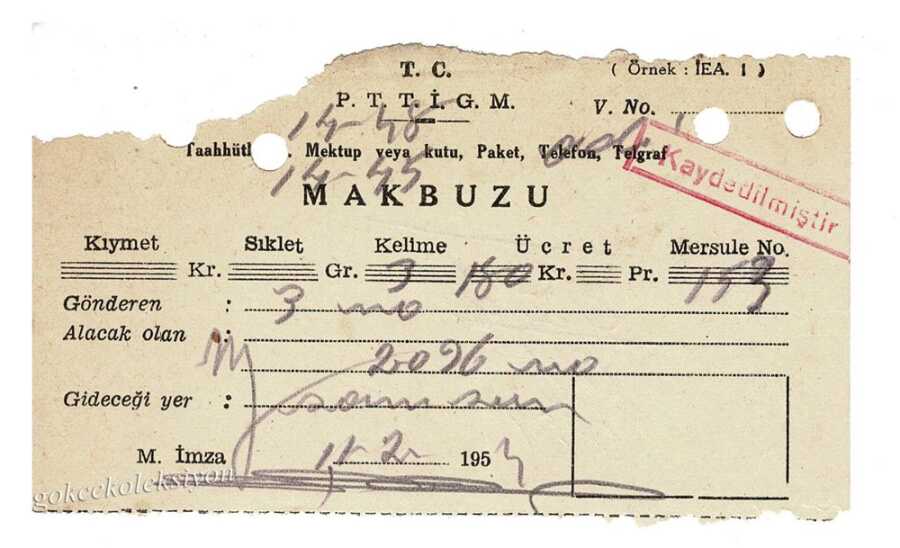 T. C.
( Örnek : İEA. 1 )
P. T. T. İ. G. M.
V. No.
14-48
adi
Mektup veya kutu, Paket, Telefon, Telgraf
Kaydedilmiştir
14-45
MAKBUZU
Kıymet Sıklet Kelime Ücret Mersule No.
Kr. Gr. 3 180 Kr. Pr. 153
Gönderen : 3 no
Alacak olan :
2096 no
Gideceği yer : Samsun
M. İmza 11-2- 195
gokcekoleksiyon